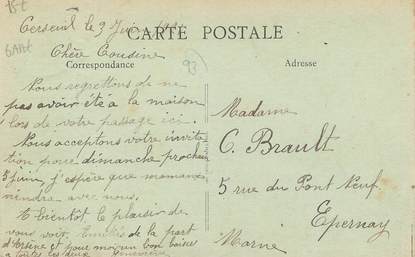 Cerseuil le 9 Juin
CARTE POSTALE
Chère Cousine
Correspondance
Adresse
Nous regrettons de ne
pas avoir été à la maison
lors de votre passage ici.
Nous acceptons votre invita
tion pour dimanche prochain
juin, j'espère que maman
viendra avec nous.
A bientôt le plaisir de
vous voir. de la part
d'Arsène et pour moi un bon baiser
à toutes les deux Geneviève
Madame
C. Brault
5 rue du Pont Neuf
Epernay
Marne